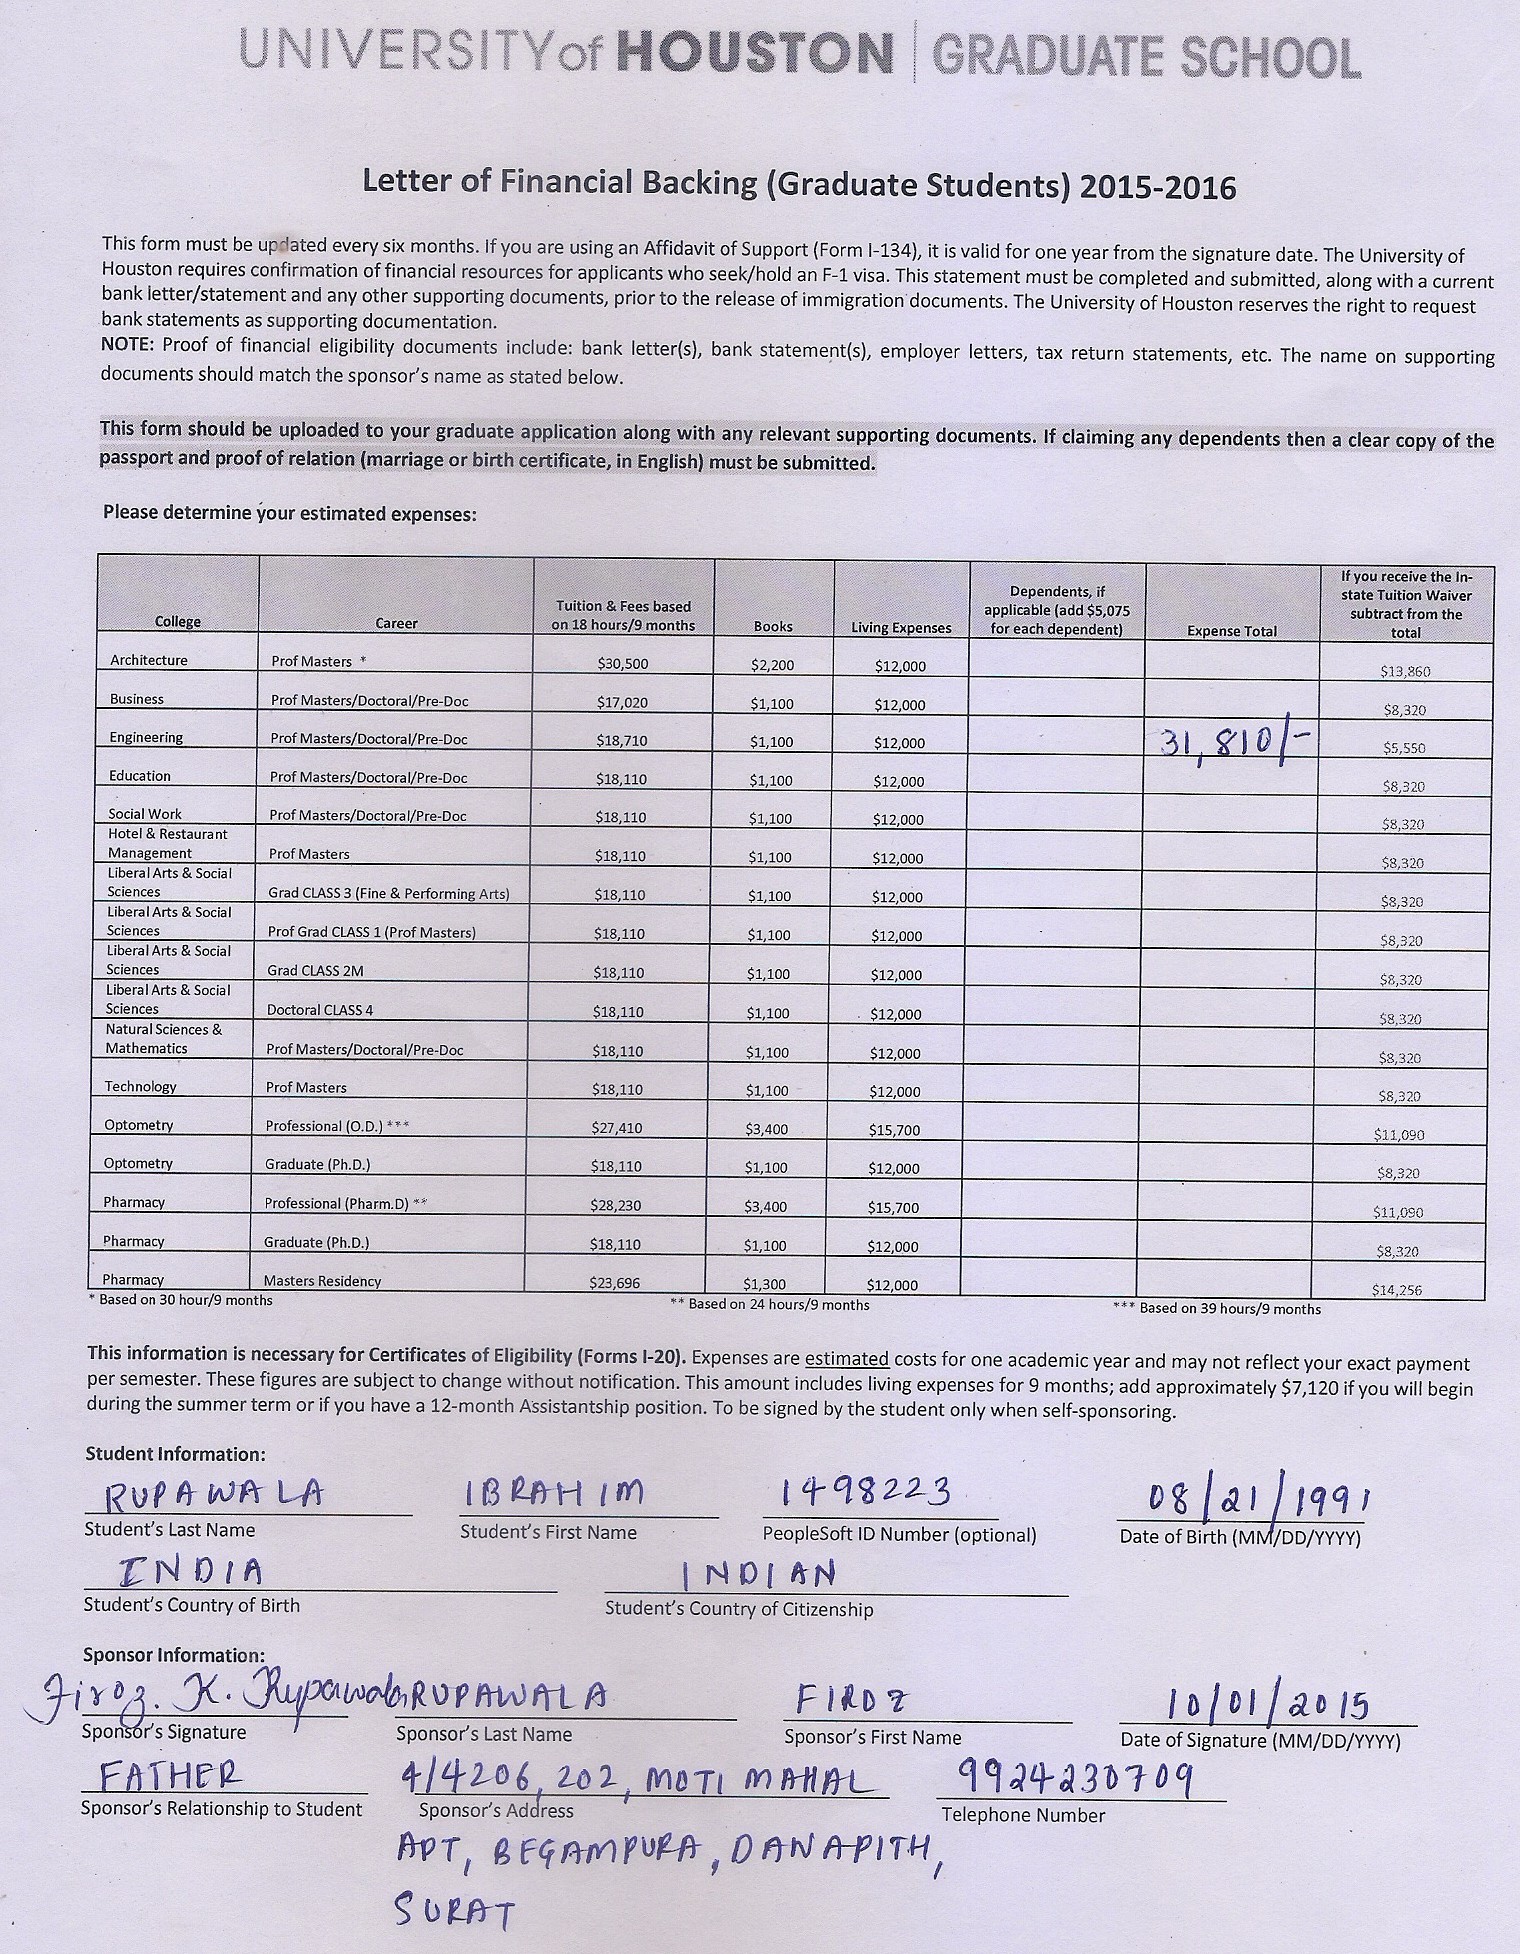 UNIVERSITY of HOUSTON | GRADUATE SCHOOL
Letter of Financial Backing (Graduate Students) 2015-2016
This form must be updated every six months. If you are using an Affidavit of Support (Form I-134), it is valid for one year from the signature date. The University of
Houston requires confirmation of financial resources for applicants who seek/hold an F-1 visa. This statement must be completed and submitted, along with a current
bank letter/statement and any other supporting documents, prior to the release of immigration documents. The University of Houston reserves the right to request
bank statements as supporting documentation.
NOTE: Proof of financial eligibility documents include: bank letter(s), bank statement(s), employer letters, tax return statements, etc. The name on supporting
documents should match the sponsor's name as stated below.
This form should be uploaded to your graduate application along with any relevant supporting documents. If claiming any dependents then a clear copy of the
passport and proof of relation (marriage or birth certificate, in English) must be submitted.
Please determine your estimated expenses:
College Career Tuition & Fees based on 18 hours/9 months Books Living Expenses Dependents, if applicable (add $5,075 for each dependent) Expense Total If you receive the In-state Tuition Waiver subtract from the total
Architecture Prof Masters * $30,500 $2,200 $12,000 $13,860
Business Prof Masters/Doctoral/Pre-Doc $17,020 $1,100 $12,000 $8,320
Engineering Prof Masters/Doctoral/Pre-Doc $18,710 $1,100 $12,000 31,810/- $5,550
Education Prof Masters/Doctoral/Pre-Doc $18,110 $1,100 $12,000 $8,320
Social Work Prof Masters/Doctoral/Pre-Doc $18,110 $1,100 $12,000 $8,320
Hotel & Restaurant Management Prof Masters $18,110 $1,100 $12,000 $8,320
Liberal Arts & Social Sciences Grad CLASS 3 (Fine & Performing Arts) $18,110 $1,100 $12,000 $8,320
Liberal Arts & Social Sciences Prof Grad CLASS 1 (Prof Masters) $18,110 $1,100 $12,000 $8,320
Liberal Arts & Social Sciences Grad CLASS 2M $18,110 $1,100 $12,000 $8,320
Liberal Arts & Social Sciences Doctoral CLASS 4 $18,110 $1,100 $12,000 $8,320
Natural Sciences & Mathematics Prof Masters/Doctoral/Pre-Doc $18,110 $1,100 $12,000 $8,320
Technology Prof Masters $18,110 $1,100 $12,000 $8,320
Optometry Professional (O.D.) *** $27,410 $3,400 $15,700 $11,090
Optometry Graduate (Ph.D.) $18,110 $1,100 $12,000 $8,320
Pharmacy Professional (Pharm.D) ** $28,230 $3,400 $15,700 $11,090
Pharmacy Graduate (Ph.D.) $18,110 $1,100 $12,000 $8,320
Pharmacy Masters Residency $23,696 $1,300 $12,000 $14,256
* Based on 30 hour/9 months ** Based on 24 hours/9 months *** Based on 39 hours/9 months
This information is necessary for Certificates of Eligibility (Forms I-20). Expenses are estimated costs for one academic year and may not reflect your exact payment
per semester. These figures are subject to change without notification. This amount includes living expenses for 9 months; add approximately $7,120 if you will begin
during the summer term or if you have a 12-month Assistantship position. To be signed by the student only when self-sponsoring.
Student Information:
RUPAWALA IBRAHIM 1498223 08/21/1991
Student's Last Name Student's First Name PeopleSoft ID Number (optional) Date of Birth (MM/DD/YYYY)
INDIA INDIAN
Student's Country of Birth Student's Country of Citizenship
Sponsor Information:
Firoz. K. Rupawala RUPAWALA FIROZ 10/01/2015
Sponsor's Signature Sponsor's Last Name Sponsor's First Name Date of Signature (MM/DD/YYYY)
FATHER 4/4206, 202, MOTI MAHAL 9924230709
Sponsor's Relationship to Student Sponsor's Address Telephone Number
APT, BEGAMPURA, DANAPITH,
SURAT